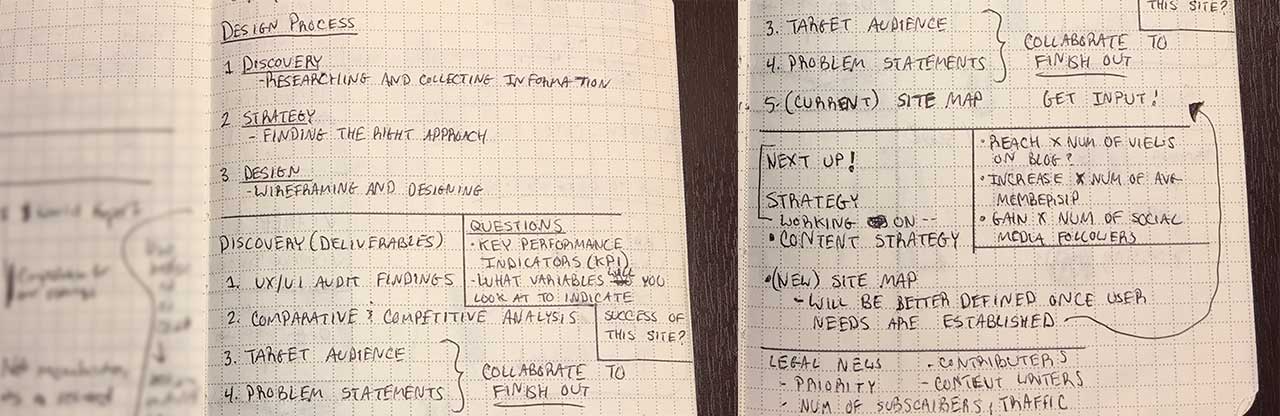 DESIGN PROCESS
1 DISCOVERY
- RESEARCHING AND COLLECTING INFORMATION
2 STRATEGY
- FINDING THE RIGHT APPROACH
3 DESIGN
- WIREFRAMING AND DESIGNING
DISCOVERY (DELIVERABLES)
1. UX/UI AUDIT FINDINGS
2. COMPARATIVE & COMPETITIVE ANALYSIS
3. TARGET AUDIENCE
4. PROBLEM STATEMENTS
COLLABORATE TO
FINISH OUT
QUESTIONS
• KEY PERFORMANCE
INDICATORS (KPI)
- WHAT VARIABLES WILL YOU
LOOK AT TO INDICATE
SUCCESS OF
THIS SITE?
THIS SITE?
3. TARGET AUDIENCE
4. PROBLEM STATEMENTS
COLLABORATE TO
FINISH OUT
5. (CURRENT) SITE MAP
GET INPUT!
NEXT UP!
STRATEGY
WORKING ON --
• CONTENT STRATEGY
• REACH X NUM OF VIEWS
ON BLOG?
• INCREASE X NUM OF AVG
MEMBERSIP
• GAIN X NUM OF SOCIAL
MEDIA FOLLOWERS
• (NEW) SITE MAP
- WILL BE BETTER DEFINED ONCE USER
NEEDS ARE ESTABLISHED
LEGAL NEWS
- PRIORITY
- NUM OF SUBSCRIBERS, TRAFFIC
- CONTRIBUTERS
- CONTENT WRITERS